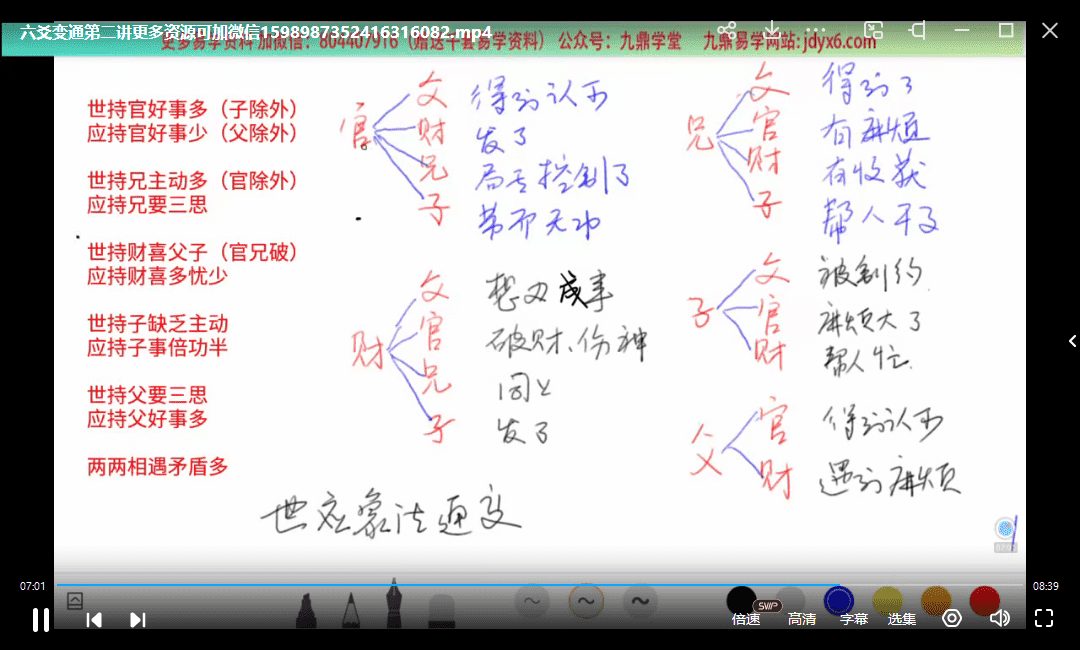 六爻变通第二讲更多资源可加微信1598987352416316082.mp4
更多易学资料 加微信：804407916（赠送千套易学资料） 公众号：九鼎学堂 九鼎易学网站：jdyx6.com
世持官好事多（子除外）
应持官好事少（父除外）
世持兄主动多（官除外）
应持兄要三思
世持财喜父子（官兄破）
应持财喜多忧少
世持子缺乏主动
应持子事倍功半
世持父要三思
应持父好事多
两两相遇矛盾多
官
父 得到认可
财 发了
兄 局去控制了
子
财
父 想办成事
官 破财、伤神
兄 同上
子 发了
兄
父 得到了
官 有麻烦
财 有收获
子 帮人干了
子
父 被制约
官 麻烦大了
财 帮人忙
父
官 得到认可
财 遇到麻烦
世应象法通变
07:01
08:39
倍速
SVIP
高清
字幕
选集